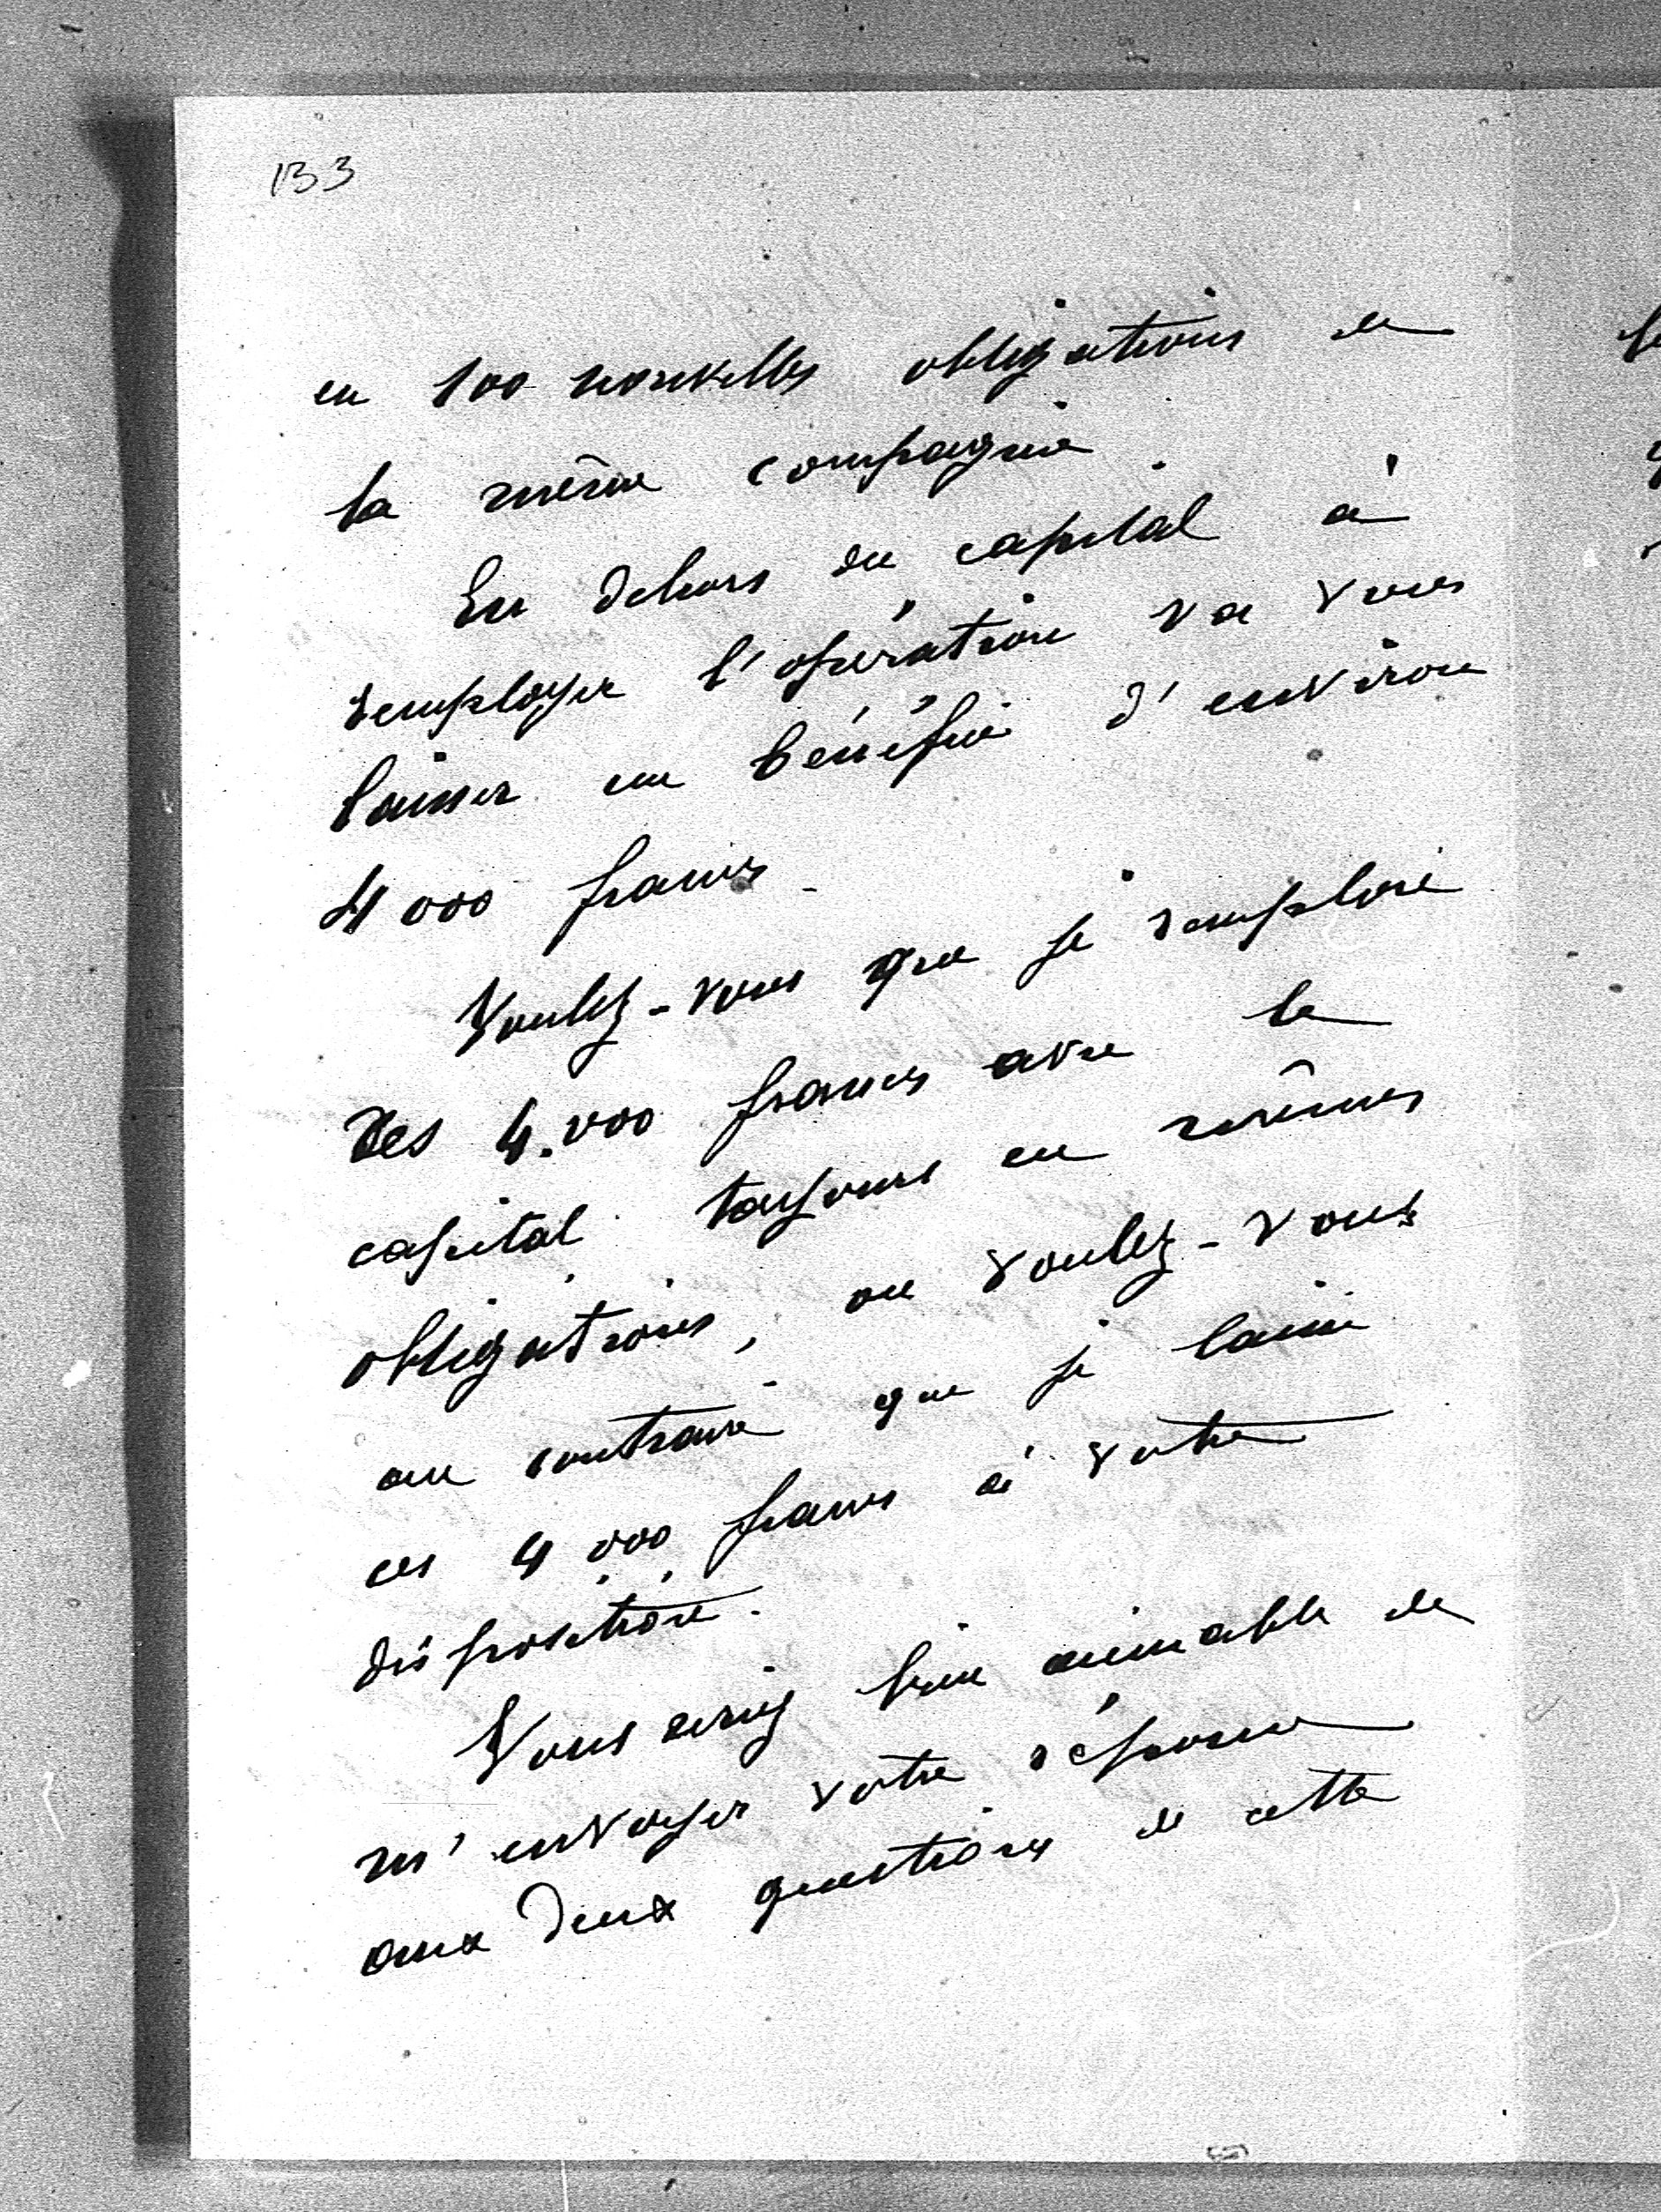 133
en 100 nouvelles obligations de
la même compagnie.
En dehors du capital à
remployer l'opération va vous
laisser un bénéfice d'environ
4000 francs.
Voulez-vous que je remploie
ces 4.000 francs avec le
capital toujours en mêmes
obligations, ou voulez-vous
au contraire que je laisse
ces 4000 francs à votre
disposition.
Vous seriez bien aimable de
m'envoyer votre réponse
aux deux questions de cette